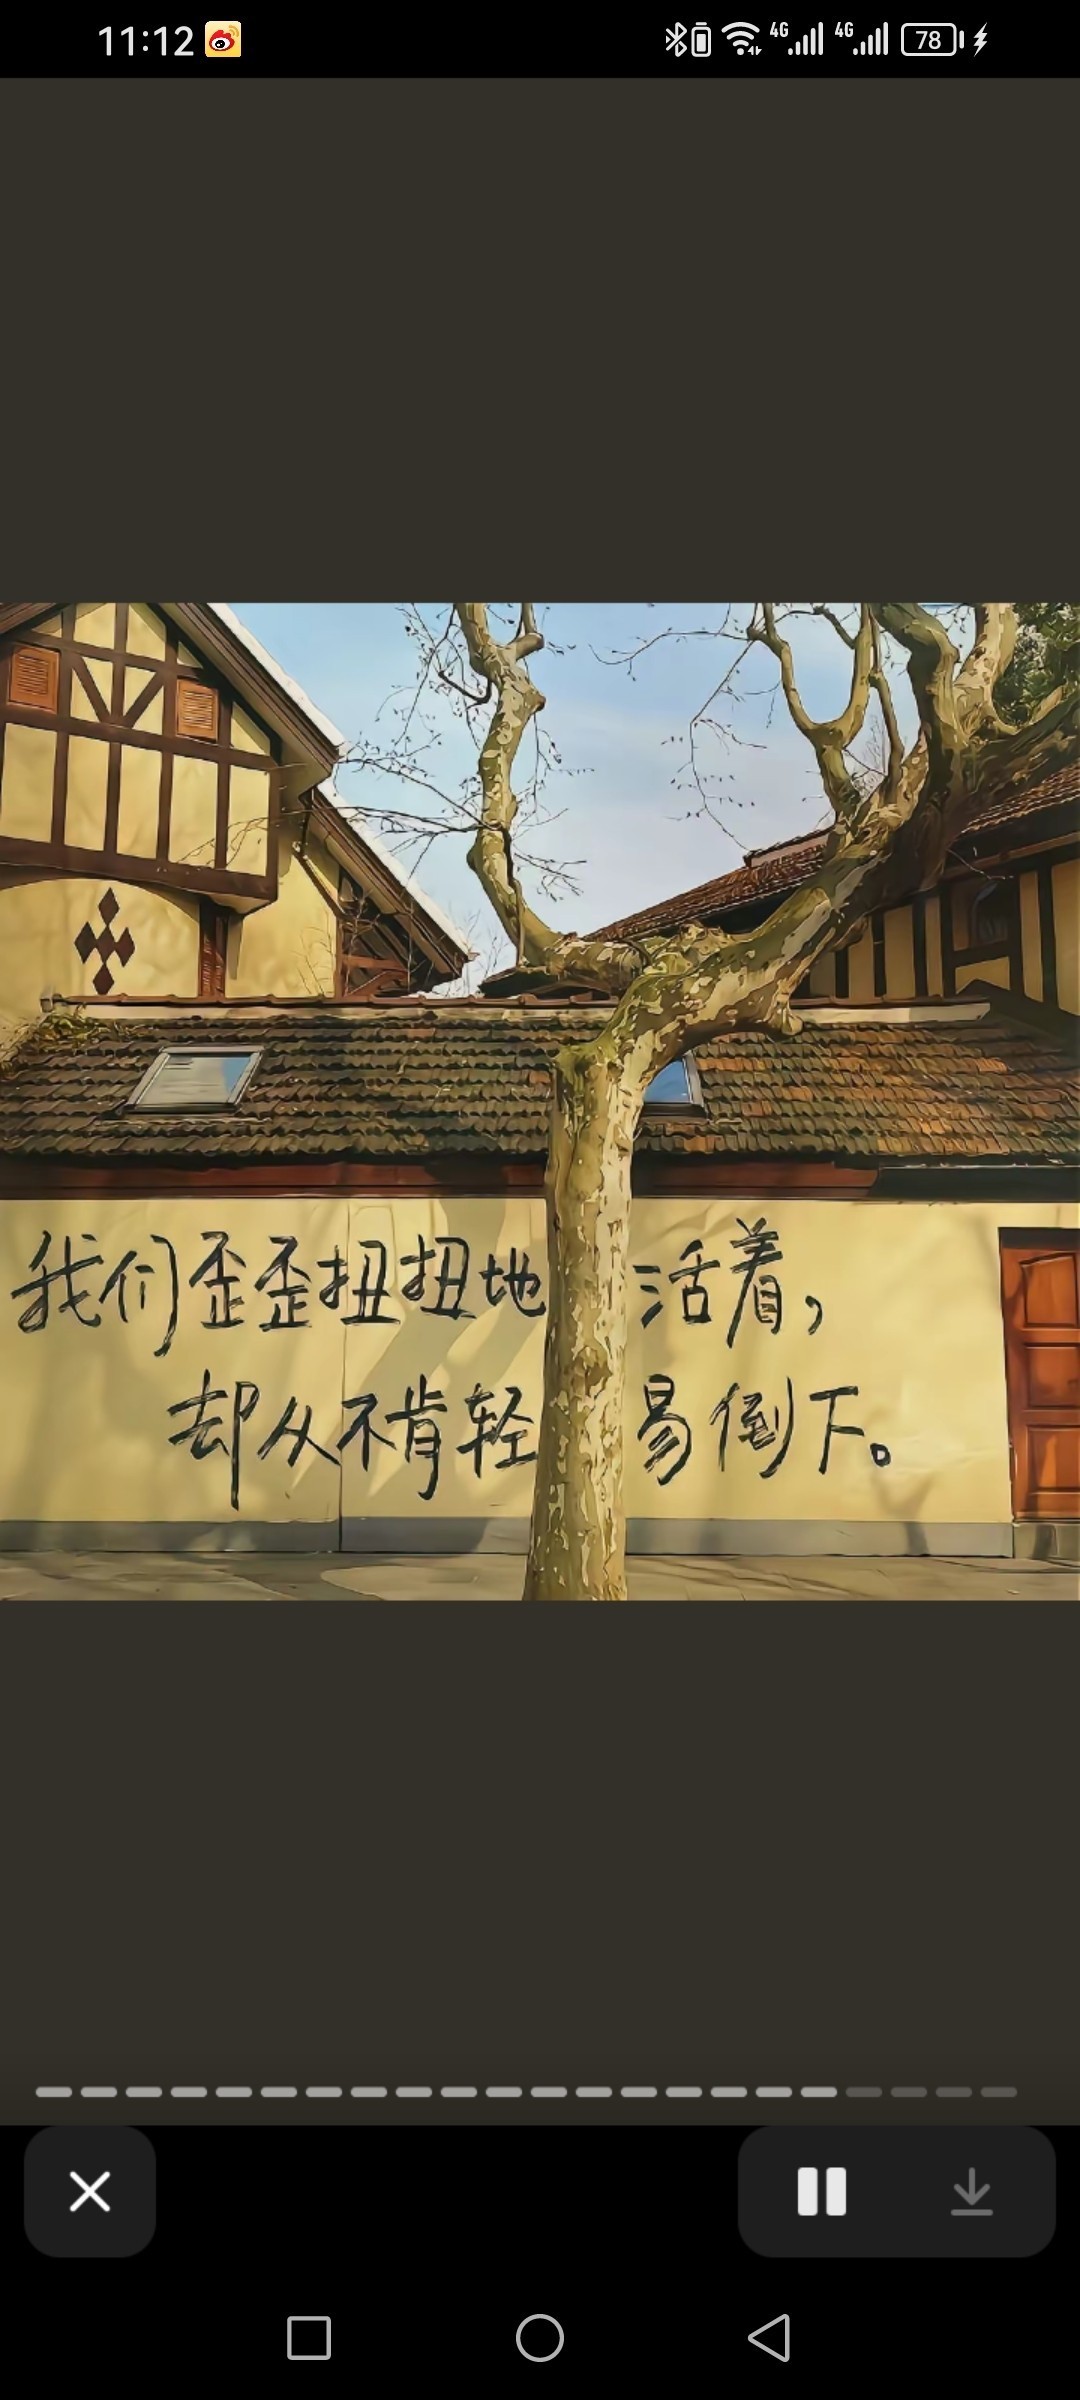 11:12
4G 4G 78
我们歪歪扭扭地活着，
却从不肯轻易倒下。